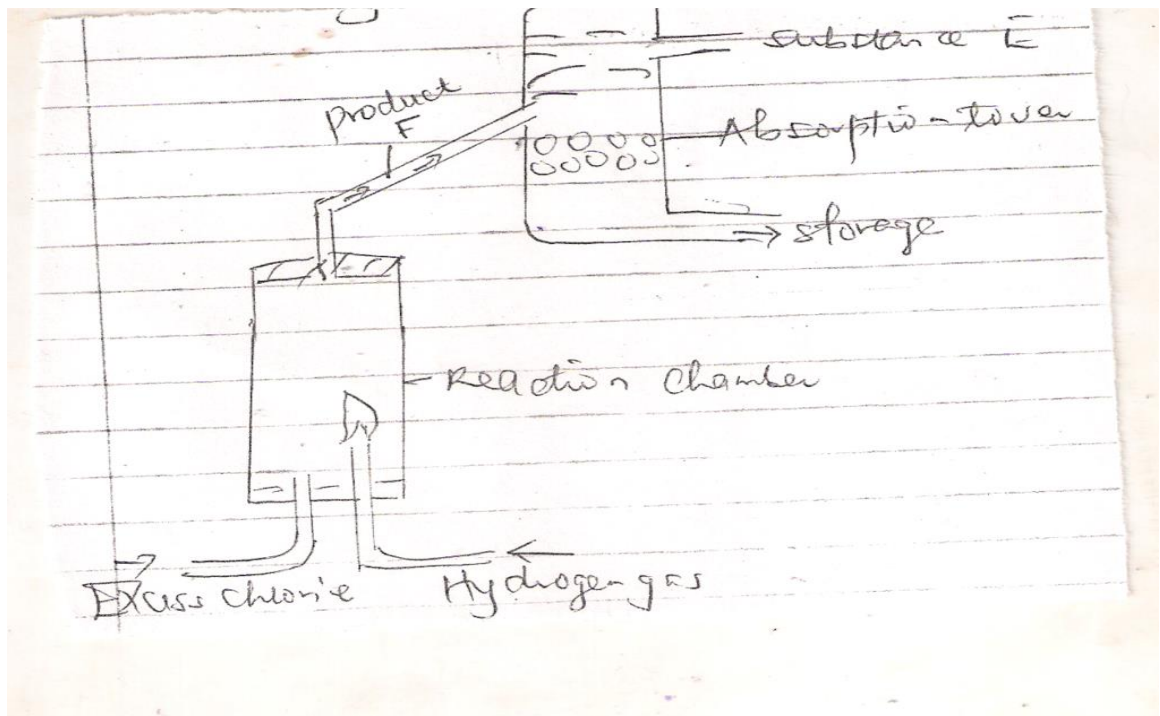 substance E
product
F
Absorption tower
storage
Reaction Chamber
Excess chlorie
Hydrogen gas